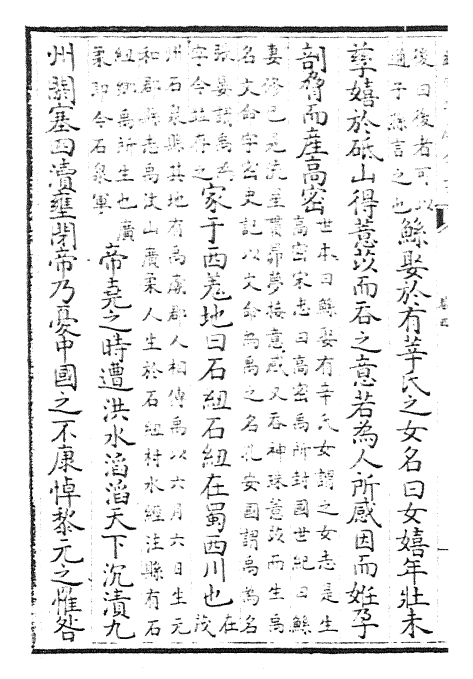 後曰後者可以
通子孫言之也
鯀娶於有莘氏之女名曰女嬉年壯未
孳嬉於砥山得薏苡而吞之意若為人所感因而姙孕
剖脅而產高密
世本曰鯀娶有辛氏女謂之女志是生
高密宋志曰高密禹所封國世紀曰鯀
妻修己見流星貫昴夢接意感又吞神珠薏苡而生禹
名文命字密史記以文命為禹之名孔安國謂禹為名
張晏謂禹為
字今並存之
家于西羌地曰石紐石紐在蜀西川也
在
茂
州石泉縣其地有禹廟郡人相傳禹以六月六日生元
和郡縣志禹汶山廣柔人生於石紐村水經注縣有石
紐鄉禹所生也廣
柔即今石泉軍
帝堯之時遭洪水滔滔天下沉漬九
州閼塞四瀆壅閉帝乃憂中國之不康悼黎元之罹咎